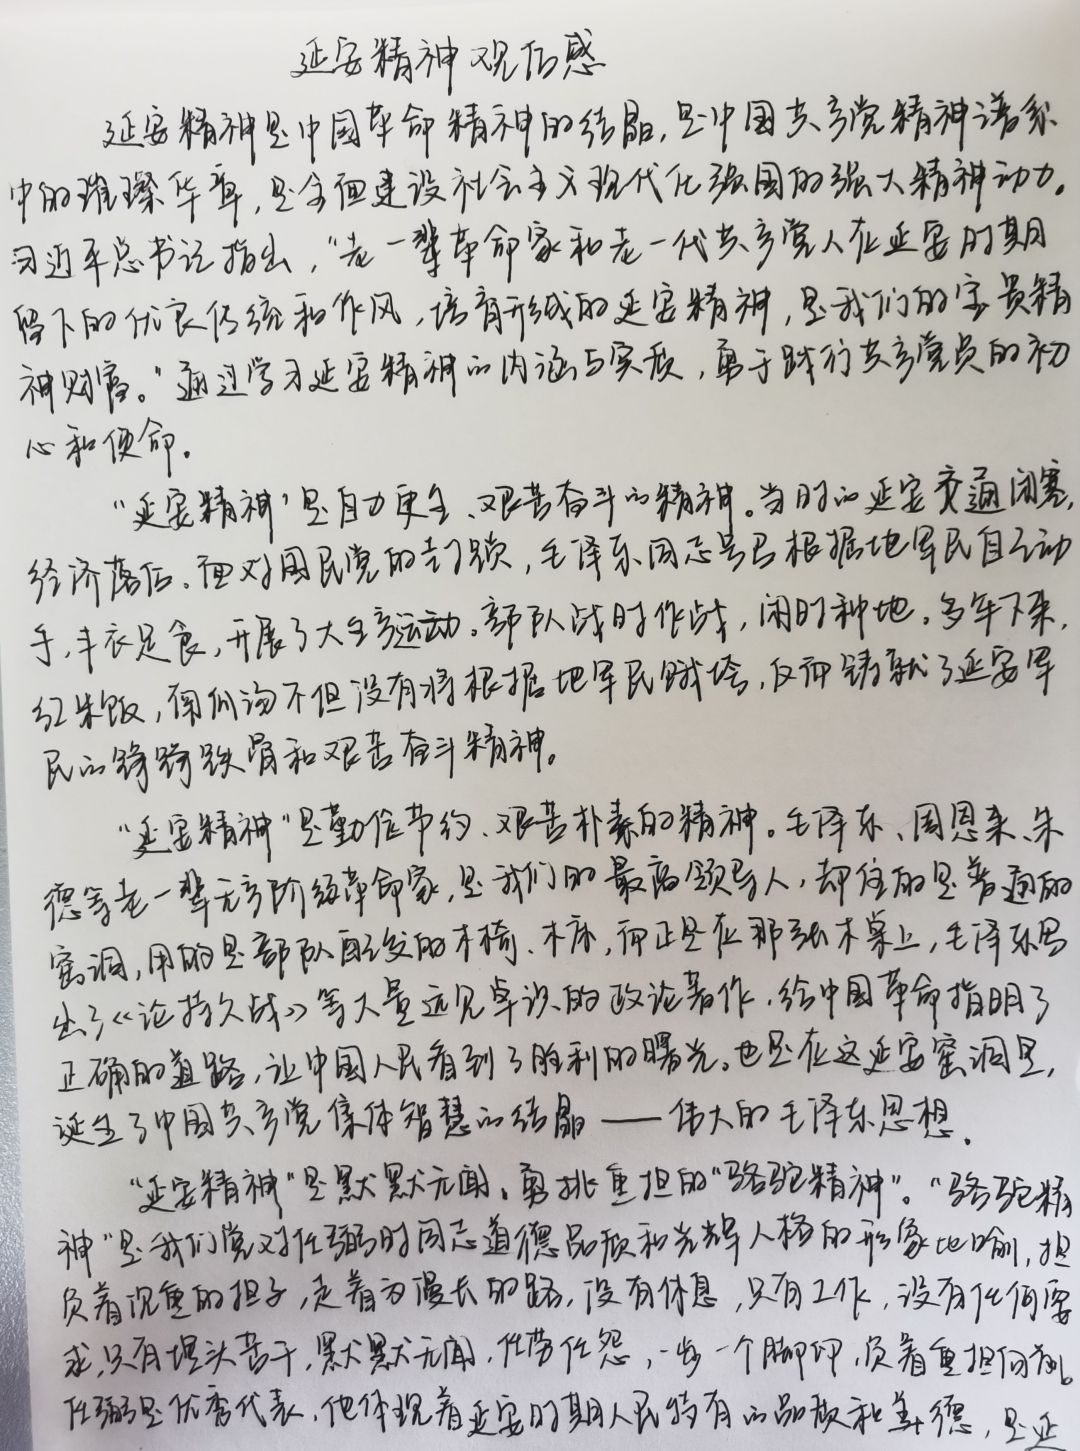 延安精神观后感
延安精神是中国革命精神的结晶，是中国共产党精神谱系
中的璀璨华章，是全面建设社会主义现代化强国的强大精神动力。
习近平总书记指出，“老一辈革命家和老一代共产党人在延安时期
留下的优良传统和作风，培育形成的延安精神，是我们的宝贵精
神财富。”通过学习延安精神的内涵与实质，勇于践行共产党员的初
心和使命。
“延安精神”是自力更生、艰苦奋斗的精神。当时的延安交通闭塞，
经济落后。面对国民党的封锁，毛泽东同志号召根据地军民自己动
手，丰衣足食，开展了大生产运动。部队战时作战，闲时种地。多年下来，
红米饭，南瓜汤不但没有将根据地军民饿垮，反而铸就了延安军
民的铮铮铁骨和艰苦奋斗精神。
“延安精神”是勤俭节约、艰苦朴素的精神。毛泽东、周恩来、朱
德等老一辈无产阶级革命家，是我们的最高领导人，却住的是普通的
窑洞，用的是部队配发的木椅、木床，而正是在那张木桌上，毛泽东写
出了《论持久战》等大量远见卓识的政论著作，给中国革命指明了
正确的道路，让中国人民看到了胜利的曙光。也是在这延安窑洞里，
诞生了中国共产党集体智慧的结晶——伟大的毛泽东思想。
“延安精神”是默默无闻、勇挑重担的“骆驼精神”。“骆驼精
神”是我们党对任弼时同志道德品质和光辉人格的形象地喻，担
负着沉重的担子，走着漫长的路，没有休息，只有工作，没有任何要
求，只有埋头苦干，默默无闻，任劳任怨，一步一个脚印，负着重担向前。
任弼是优秀代表，他体现着延安时期人民特有的品质和美德，是延